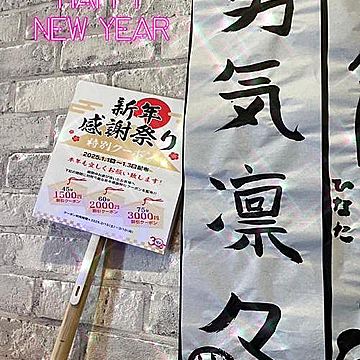 HAPPY
NEW YEAR
新年
感謝祭り
特別クーポン
2025.1.1㊌〜1.3㊎配布
本年も宜しくお願い致します!
45分
1500円
割引クーポン
60分
2000円
割引クーポン
75分
3000円
割引クーポン
勇気凛々
ひなた